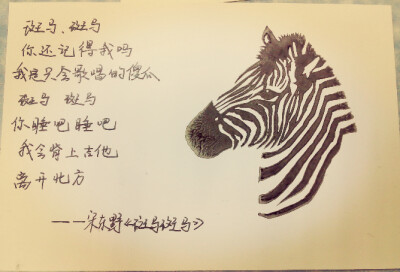 斑马、斑马
你还记得我吗
我是只会歌唱的傻瓜
斑马 斑马
你睡吧睡吧
我会背上吉他
离开北方
——宋东野《斑马斑马》